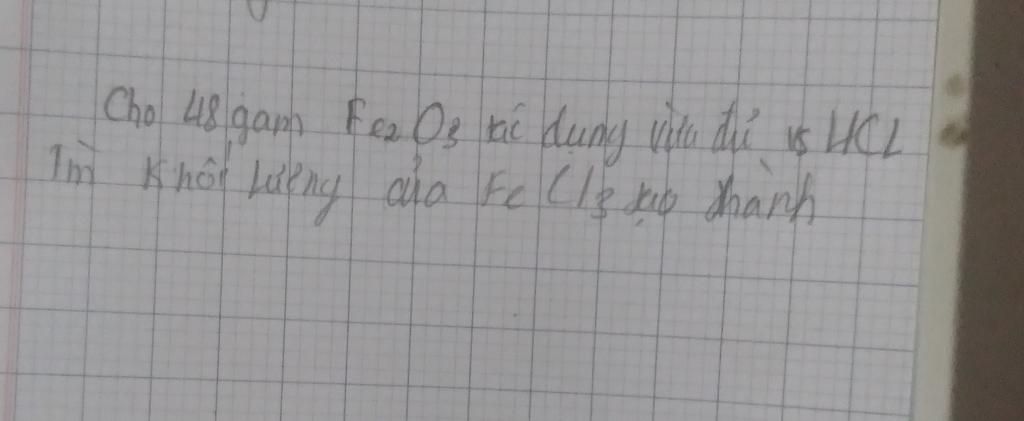 Cho 48 gam Fe2O3 tác dụng vừa đủ vs HCL
Tìm khối lượng của FeCl3 tạo thành